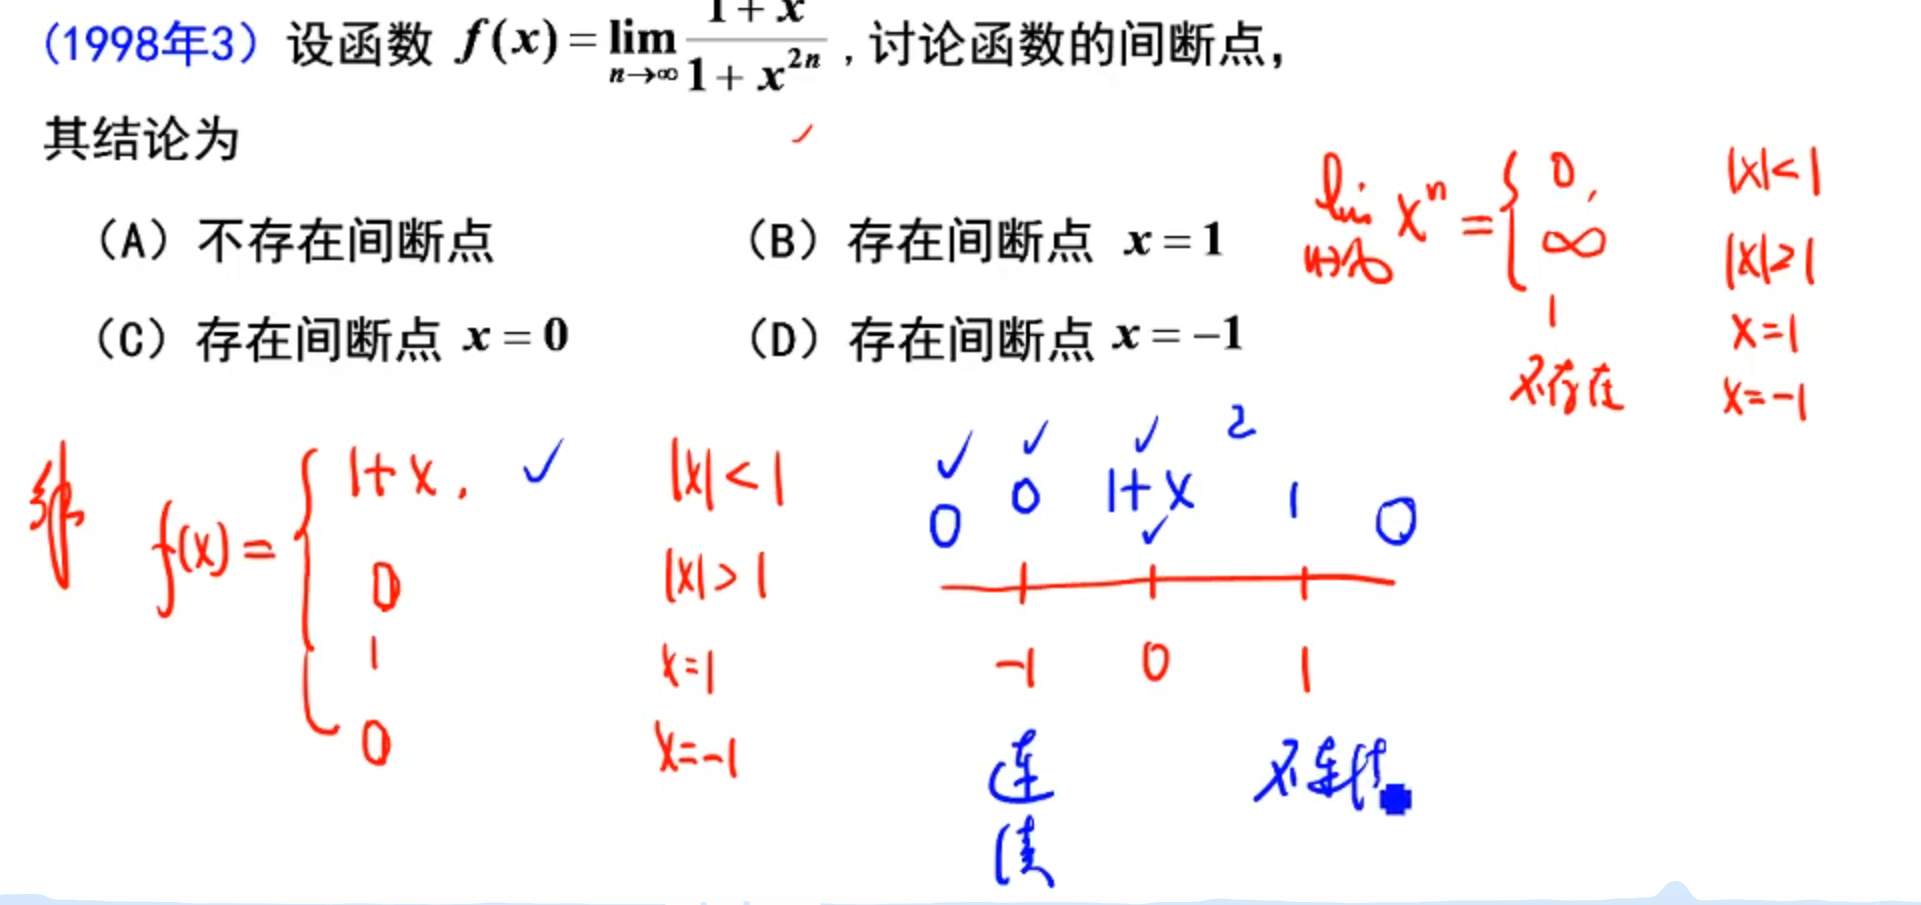 (1998年3) 设函数 f(x) = lim n→∞ (1 + x)/(1 + x^{2n}) , 讨论函数的间断点,
其结论为
(A) 不存在间断点 (B) 存在间断点 x = 1
(C) 存在间断点 x = 0 (D) 存在间断点 x = −1
lim n→∞ x^n = { 0, |x|<1
∞ |x|>1
1 x=1
不存在 x=-1
解 f(x) = { 1+x, ✓ |x|<1
0 |x|>1
1 x=1
0 x=-1
✓ ✓ ✓ 2
0 0 1+x 1 0
✓
-1 0 1
连续 不连续